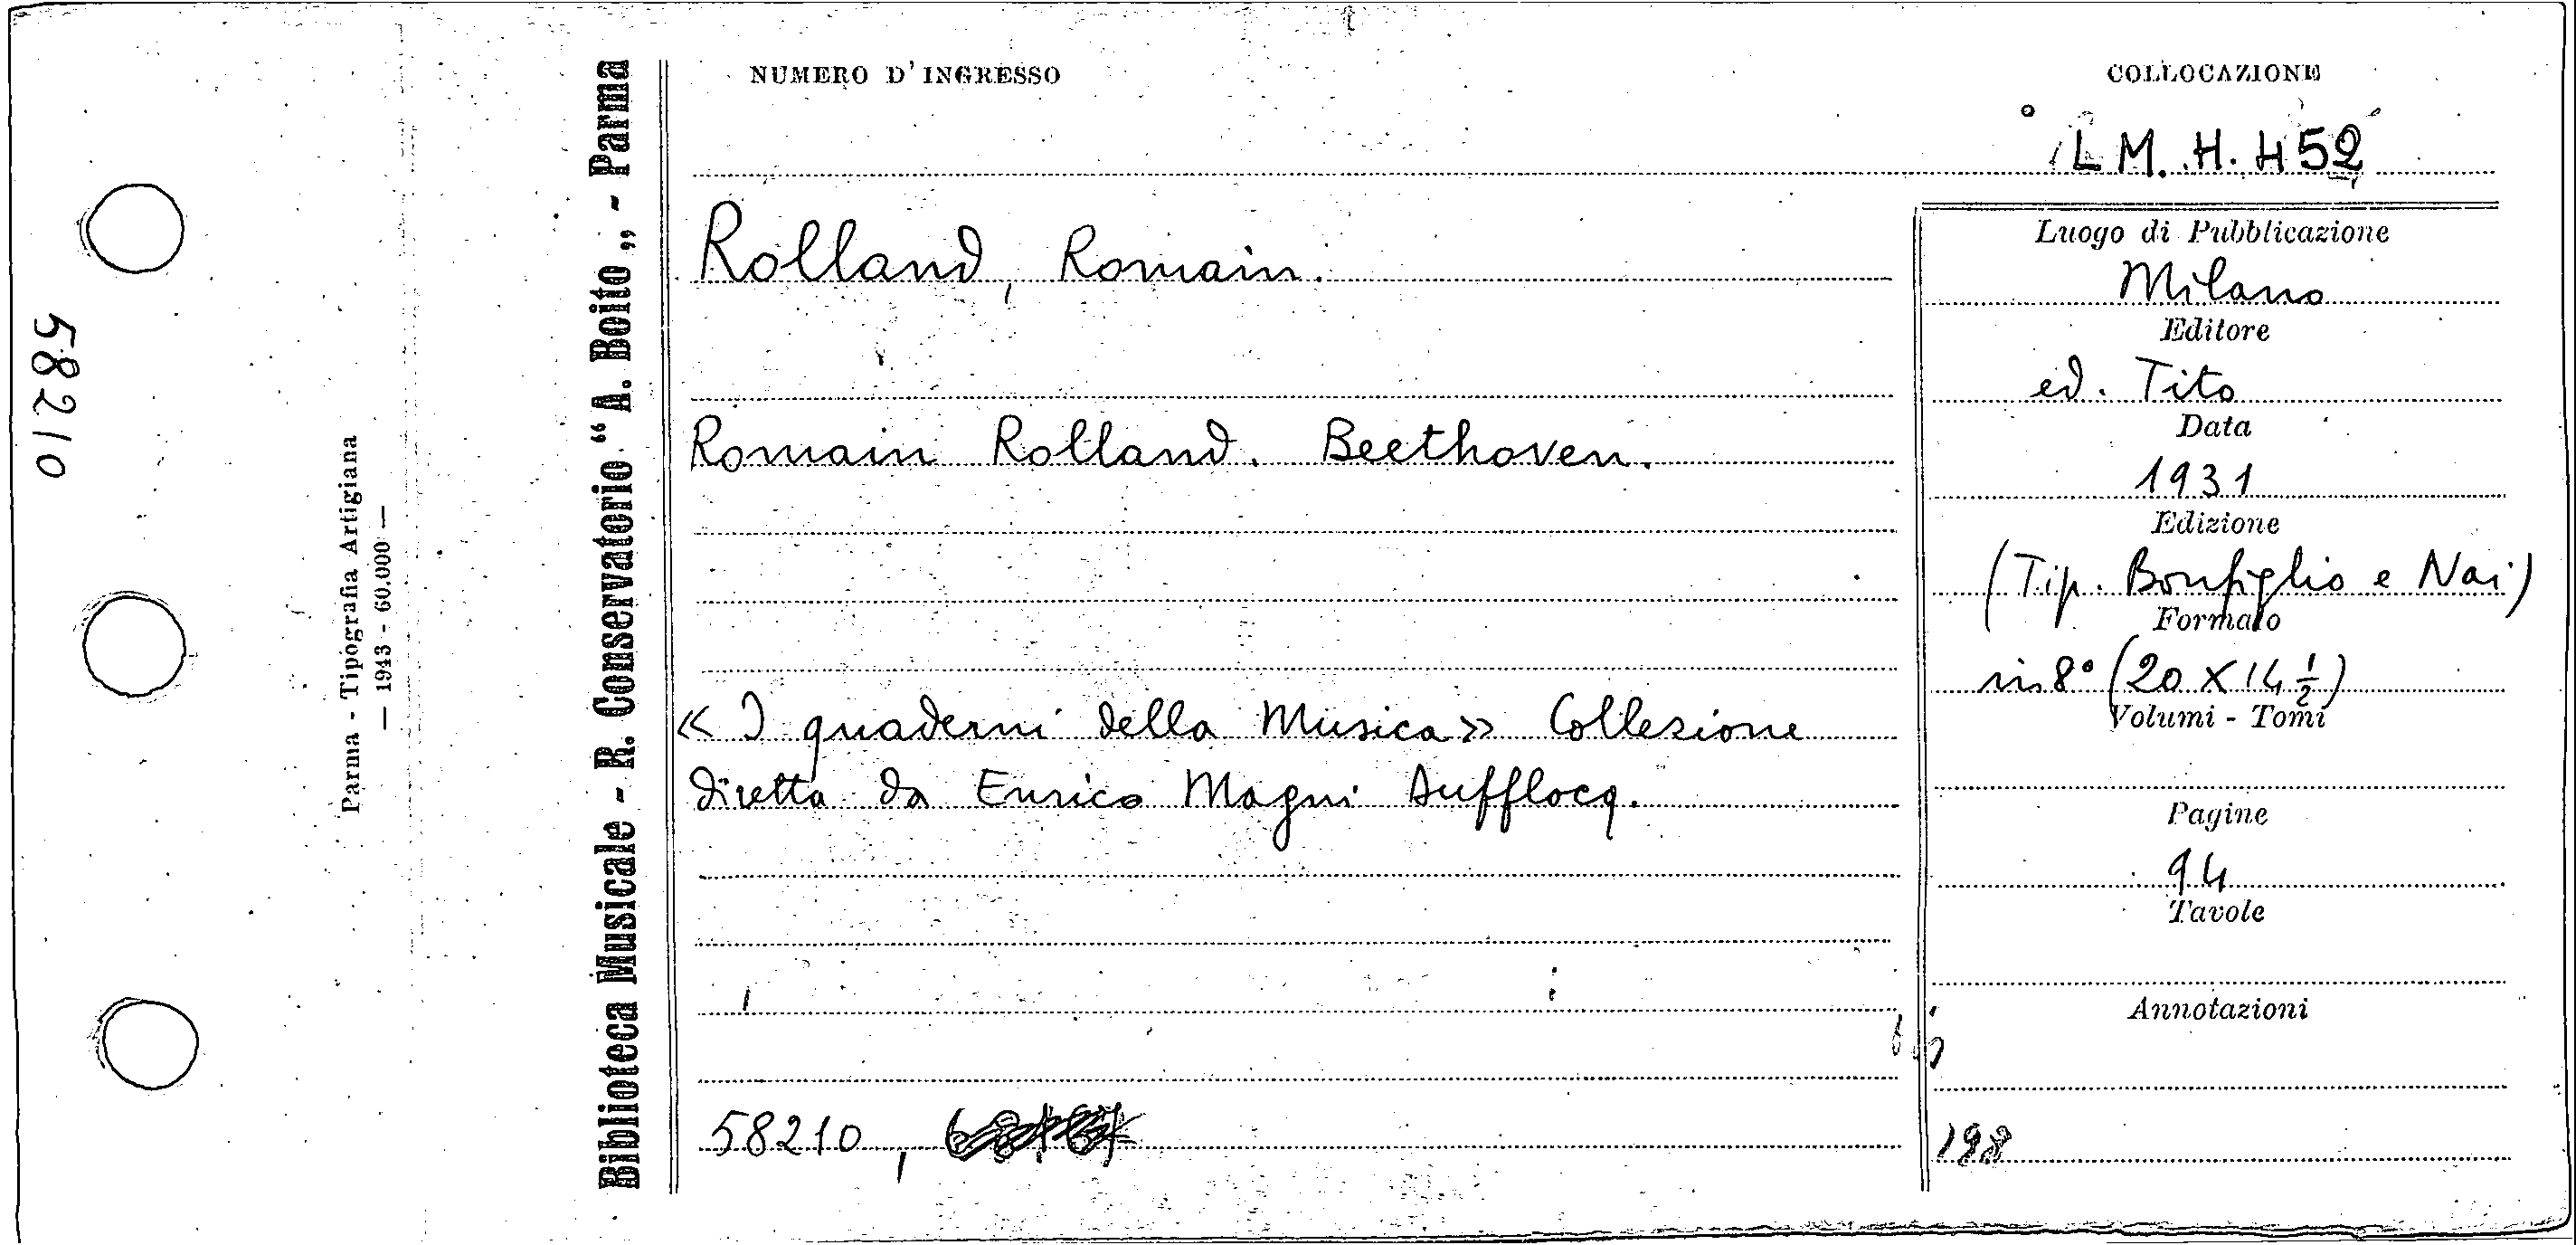 58210
Parma - Tipografia Artigiana
— 1943 - 60.000 —
Biblioteca Musicale - R. Conservatorio “A. Boito„ - Parma
NUMERO D'INGRESSO
COLLOCAZIONE
LM. H. 452
Rolland, Romain.
Romain Rolland. Beethoven.
« I quaderni della Musica» Collezione
diretta da Enrico Magni Dufflocq.
58210,
Luogo di Pubblicazione
Milano
Editore
ed. Tito
Data
1931
Edizione
(Tip. Bonfiglio e Nai)
Formato
in 8° (20 X 14 ½)
Volumi - Tomi
Pagine
94
Tavole
Annotazioni
198